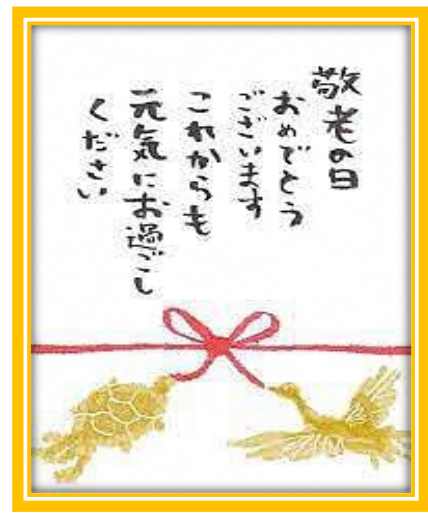 敬老の日
おめでとう
ございます
これからも
元気にお過ごし
ください